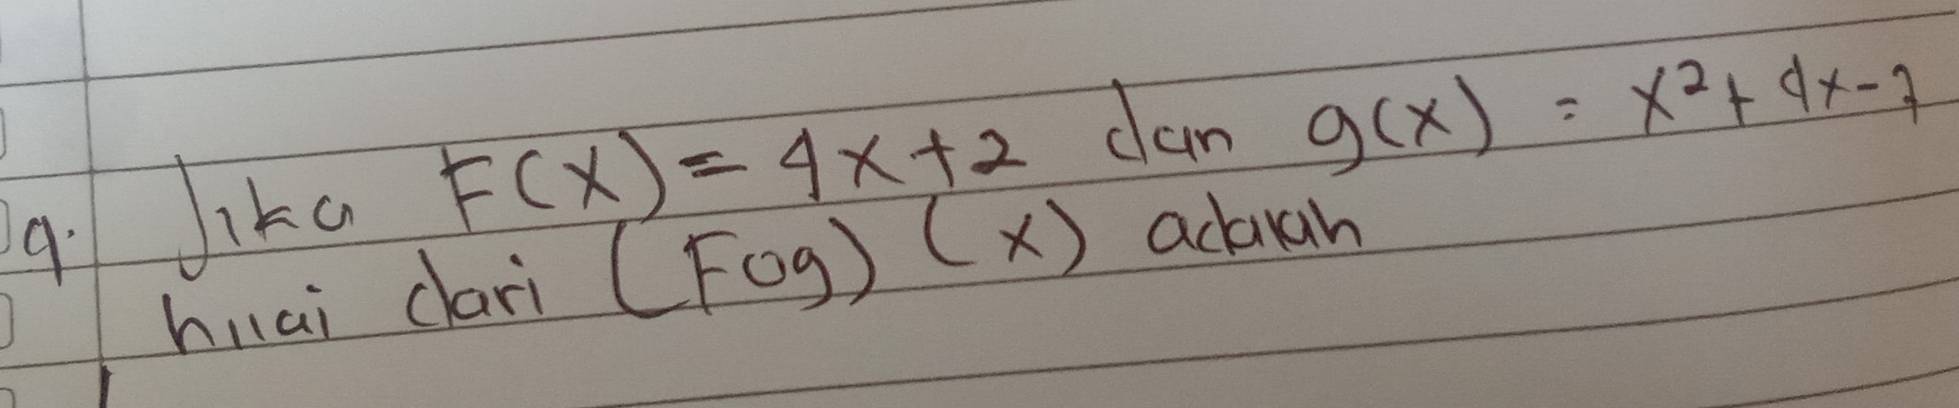 9. Jika F(X) = 4x+2 dan g(x) = x²+4x-7
nilai dari (Fog) (x) adalah